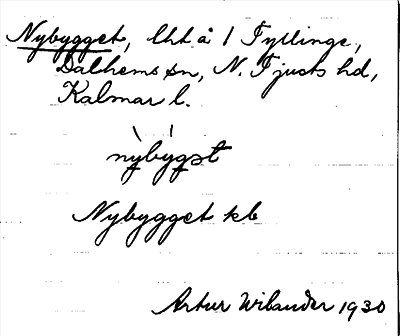 Nybygget, lht å 1 Fyllinge,
Dalhems sn, N. Tjusts hd,
Kalmar l.
nỳbýgət
Nybygget kb
Artur Wilander 1930